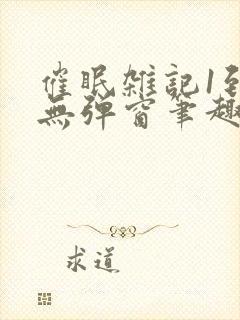 催眠雑記1至
無彈窗筆趣
求道